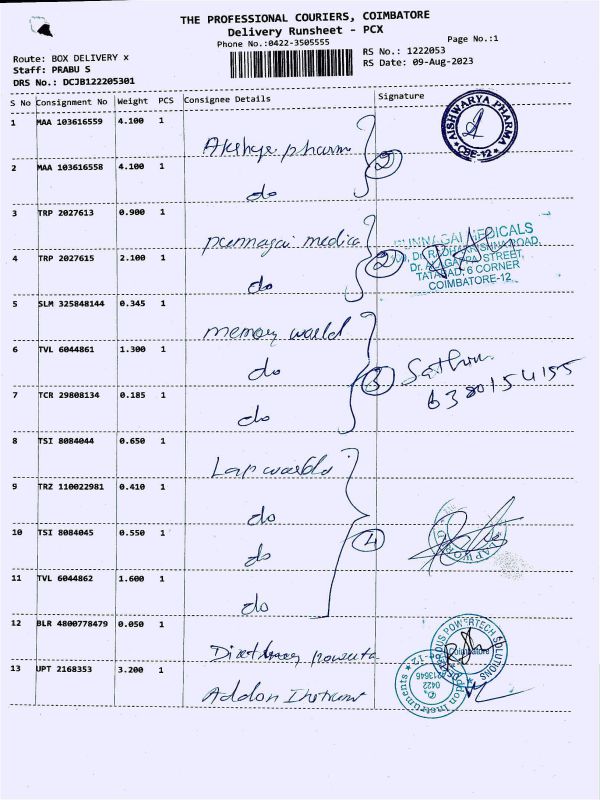 THE PROFESSIONAL COURIERS, COIMBATORE
Delivery Runsheet - PCX
Phone No.:0422-3505555
Page No.:1
Route: BOX DELIVERY x
RS No.: 1222053
Staff: PRABU S
RS Date: 09-Aug-2023
DRS No.: DCJB122205301
S No Consignment No Weight PCS Consignee Details Signature
1 MAA 103616559 4.100 1
AISHWARYA PHARMA
CBE-12
2 MAA 103616558 4.100 1 do 2
3 TRP 2027613 0.900 1 punnagai medica
PUNNAGAI MEDICALS
Dr. RADHAKRISHNA ROAD,
Dr. ALAGAPPA STREET,
TATABAD, 6 CORNER
COIMBATORE-12
4 TRP 2027615 2.100 1 do 2
5 SLM 325848144 0.345 1 memory world
6 TVL 6044861 1.300 1 do
7 TCR 29808134 0.185 1 do 3
8 TSI 8084044 0.650 1 Lap world
9 TRZ 110022981 0.410 1 do
10 TSI 8084045 0.550 1 do 4
11 TVL 6044862 1.600 1 do
12 BLR 4800778479 0.050 1
POWERTECH SOLUTIONS
Coimbatore
13 UPT 2168353 3.200 1 Addon Instrum
Addon Instruments
0422